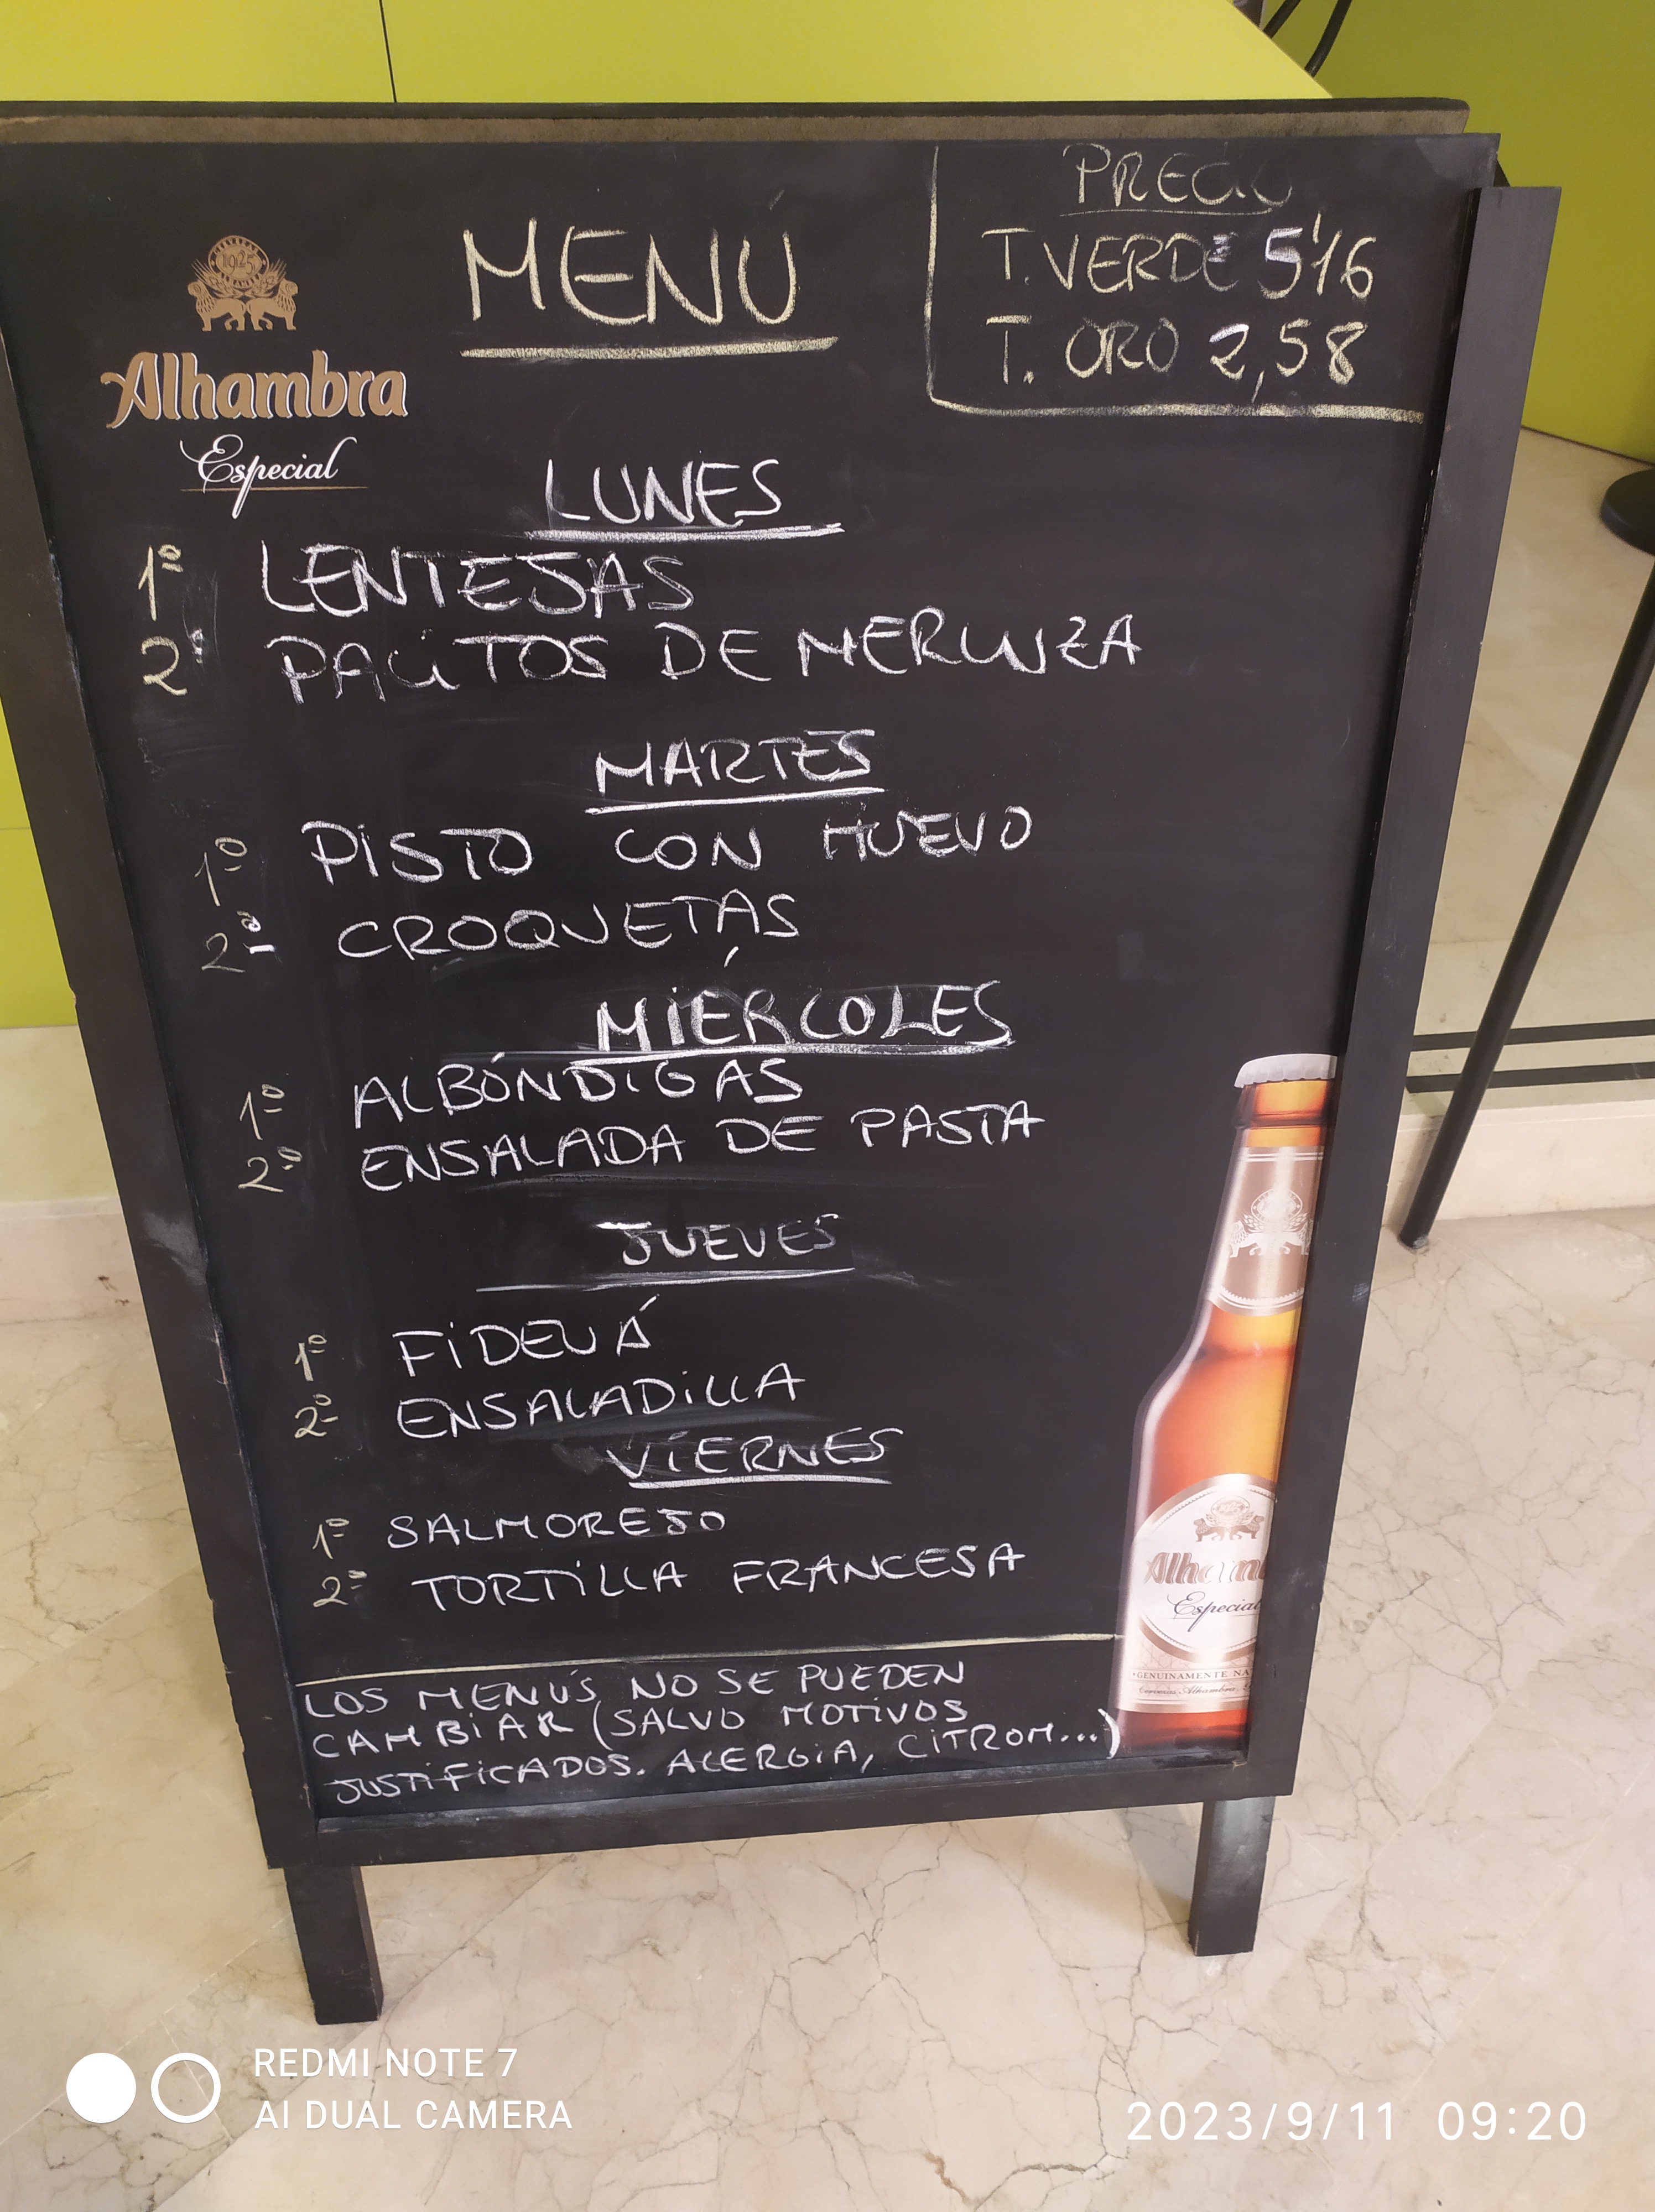 PRECIO
MENÚ
T. VERDE 5'16
T. ORO 2,58
1925
Alhambra
Especial
LUNES
1º LENTEJAS
2º PALITOS DE MERLUZA
MARTES
1º PISTO CON HUEVO
2º CROQUETAS
MIÉRCOLES
1º ALBÓNDIGAS
2º ENSALADA DE PASTA
JUEVES
1º FIDEUÁ
2º ENSALADILLA
VIERNES
1º SALMOREJO
2º TORTILLA FRANCESA
LOS MENÚS NO SE PUEDEN
CAMBIAR (SALVO MOTIVOS
JUSTIFICADOS. ALERGIA, CITROM...)
Alham
Especial
GENUINAMENTE NA
REDMI NOTE 7
AI DUAL CAMERA
2023/9/11 09:20